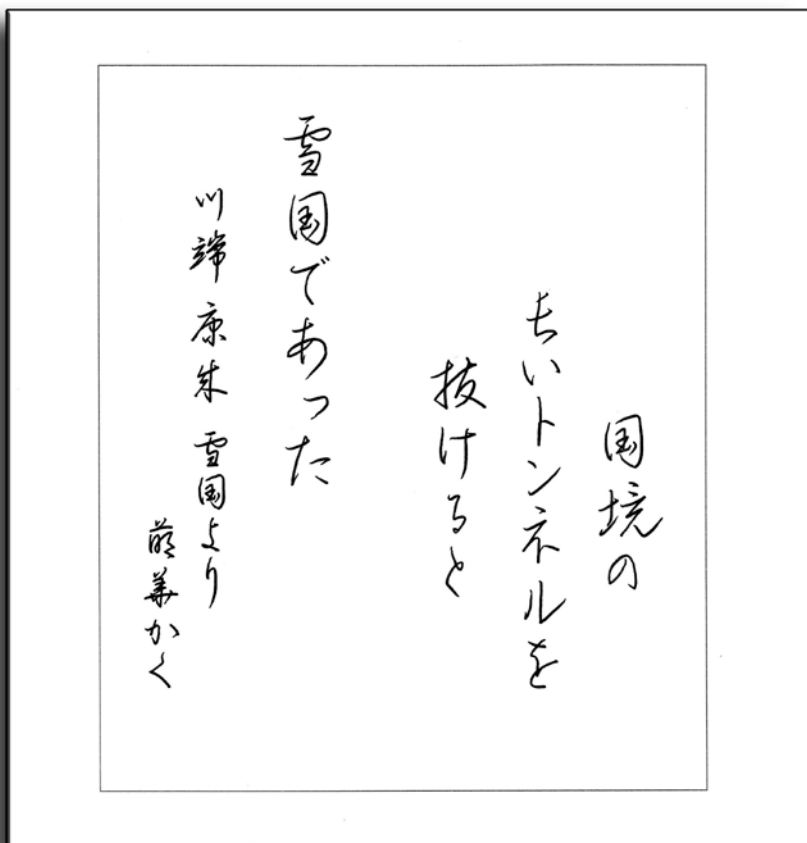 国境の
長いトンネルを
抜けると
雪国であった
川端康成 雪国より
萌華かく